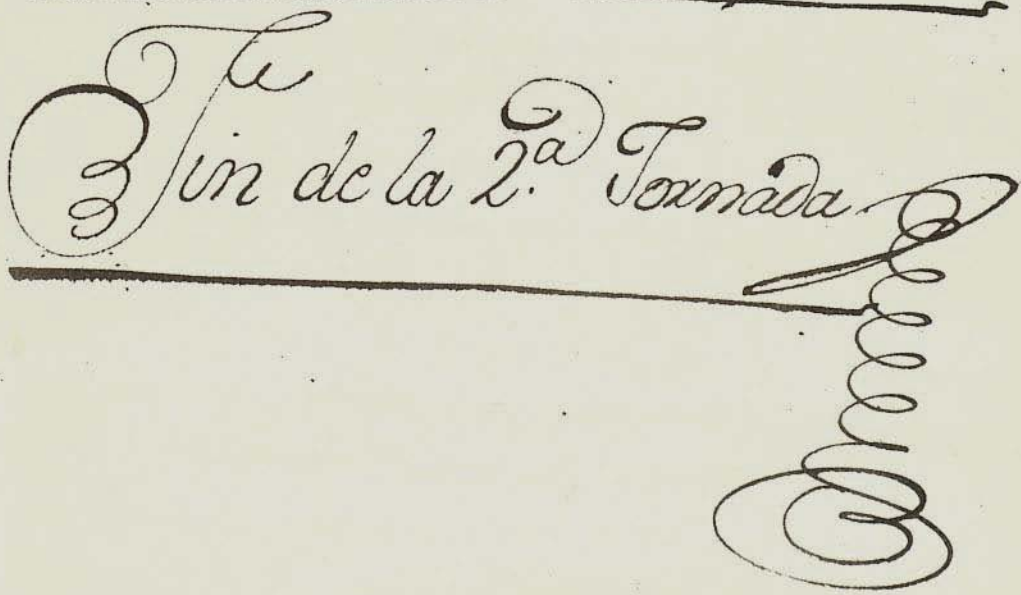 Fin de la 2.ª Jornada